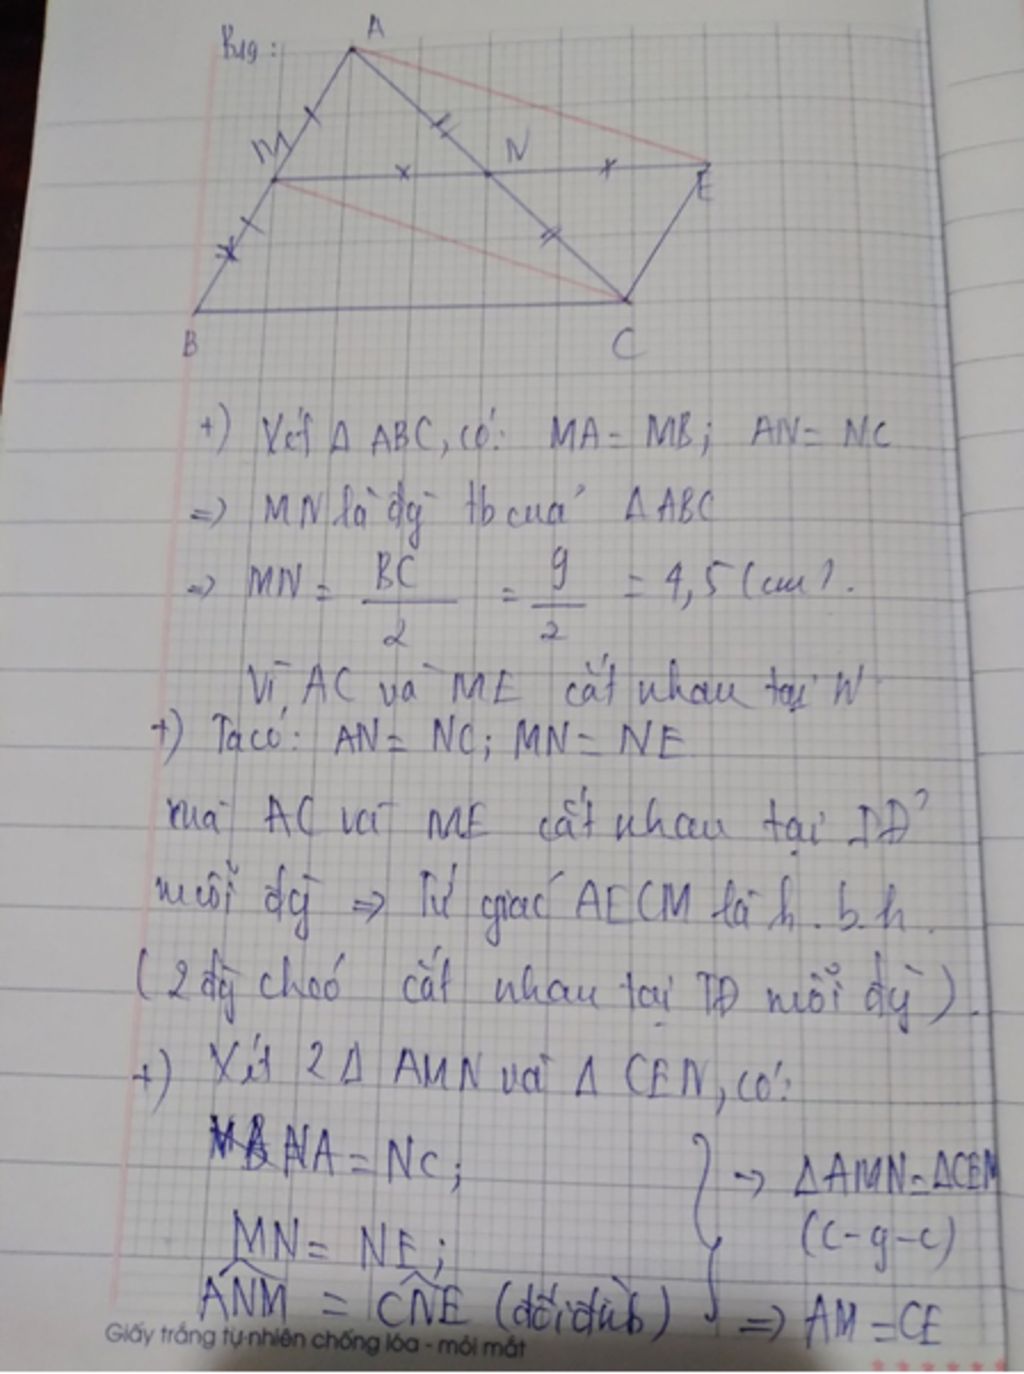 A
M
N
E
B
C
+) Xét Δ ABC, có: MA = MB; AN = NC
=> MN là đg tb của Δ ABC
=> MN = BC/2 = 9/2 = 4,5 (cm).
Vì AC và ME cắt nhau tại N
+) Ta có: AN = NC; MN = NE
mà AC và ME cắt nhau tại TĐ
mỗi đg => Tứ giác AECM là h.b.h.
(2 đg chéo cắt nhau tại TĐ mỗi đg).
+) Xét 2 Δ AMN và Δ CEN, có:
NA = NC;
-> ΔAMN = ΔCEN
MN = NE;
(c-g-c)
ANM = CNE (đối đỉnh)
=> AM = CE
Giấy trắng tự nhiên chống lóa - mỏi mắt